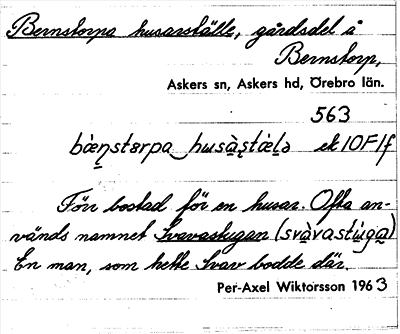 Bernstorpa husarställe, gårdsdel å
Bernstorp,
Askers sn, Askers hd, Örebro län.
563
bæ̀n̥stɵrpa husà̱ʂtæ̀lə ek 10F1f
Förr bostad för en husar. Ofta an-
vänds namnet Svavastugan (svà̱vastù̱ga̱)
En man, som hette Svav bodde där.
Per-Axel Wiktorsson 1963